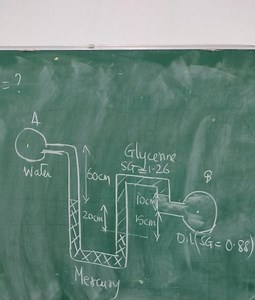 = ?
A
Water
Glycerine
SG = 1.26
60cm
20cm
10cm
15cm
B
Oil (SG = 0.88)
Mercury